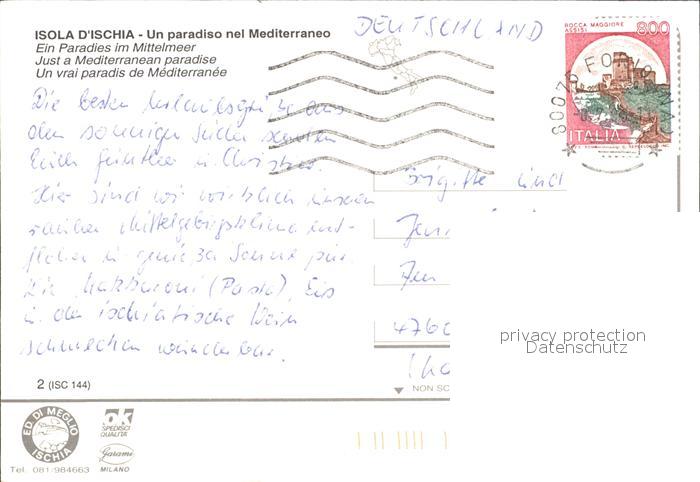 ISOLA D'ISCHIA - Un paradiso nel Mediterraneo
Ein Paradies im Mittelmeer
Just a Mediterranean paradise
Un vrai paradis de Méditerranée
DEUTSCHLAND
ROCCA MAGGIORE
ASSISI
800
80075 FORIO
ITALIA
Die besten Urlaubsgrüße aus
dem sonnigen Süden senden
Euch Günther u. Christne.
Hier sind wir wirklich unserem
rauhen Mittelgebirgsklima ent-
flohen u. genießen Sonne pur.
Die Makkaroni (Pasta), Eis
u. der ischiatische Wein
schmecken wunderbar.
Brigitte und
476
privacy protection
Datenschutz
2 (ISC 144)
NON SC
ED. DI MEGLIO
ISCHIA
Tel. 081/984663
ok
SPEDISCI
QUALITA'
Garami
MILANO